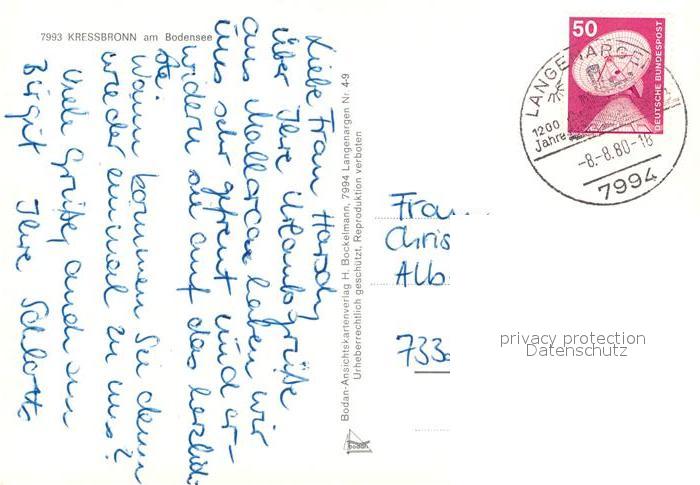 7993 KRESSBRONN am Bodensee
Liebe Frau
über Ihre Urlaubsgrüße
aus Mallorca haben wir
uns sehr gefreut und er-
widern sie auf das herzlich-
ste.
Wann kommen Sie denn
wieder einmal zu uns?
Viele Grüße auch von
Birgit Ihre
Bodan-Ansichtskartenverlag H. Bockelmann, 7994 Langenargen Nr. 4-9
Urheberrechtlich geschützt. Reproduktion verboten
bodan
50
DEUTSCHE BUNDESPOST
LANGENARGEN
1200
Jahre
-8.-8.80-16
7994
Frau
Chris
Alb
733
privacy protection
Datenschutz